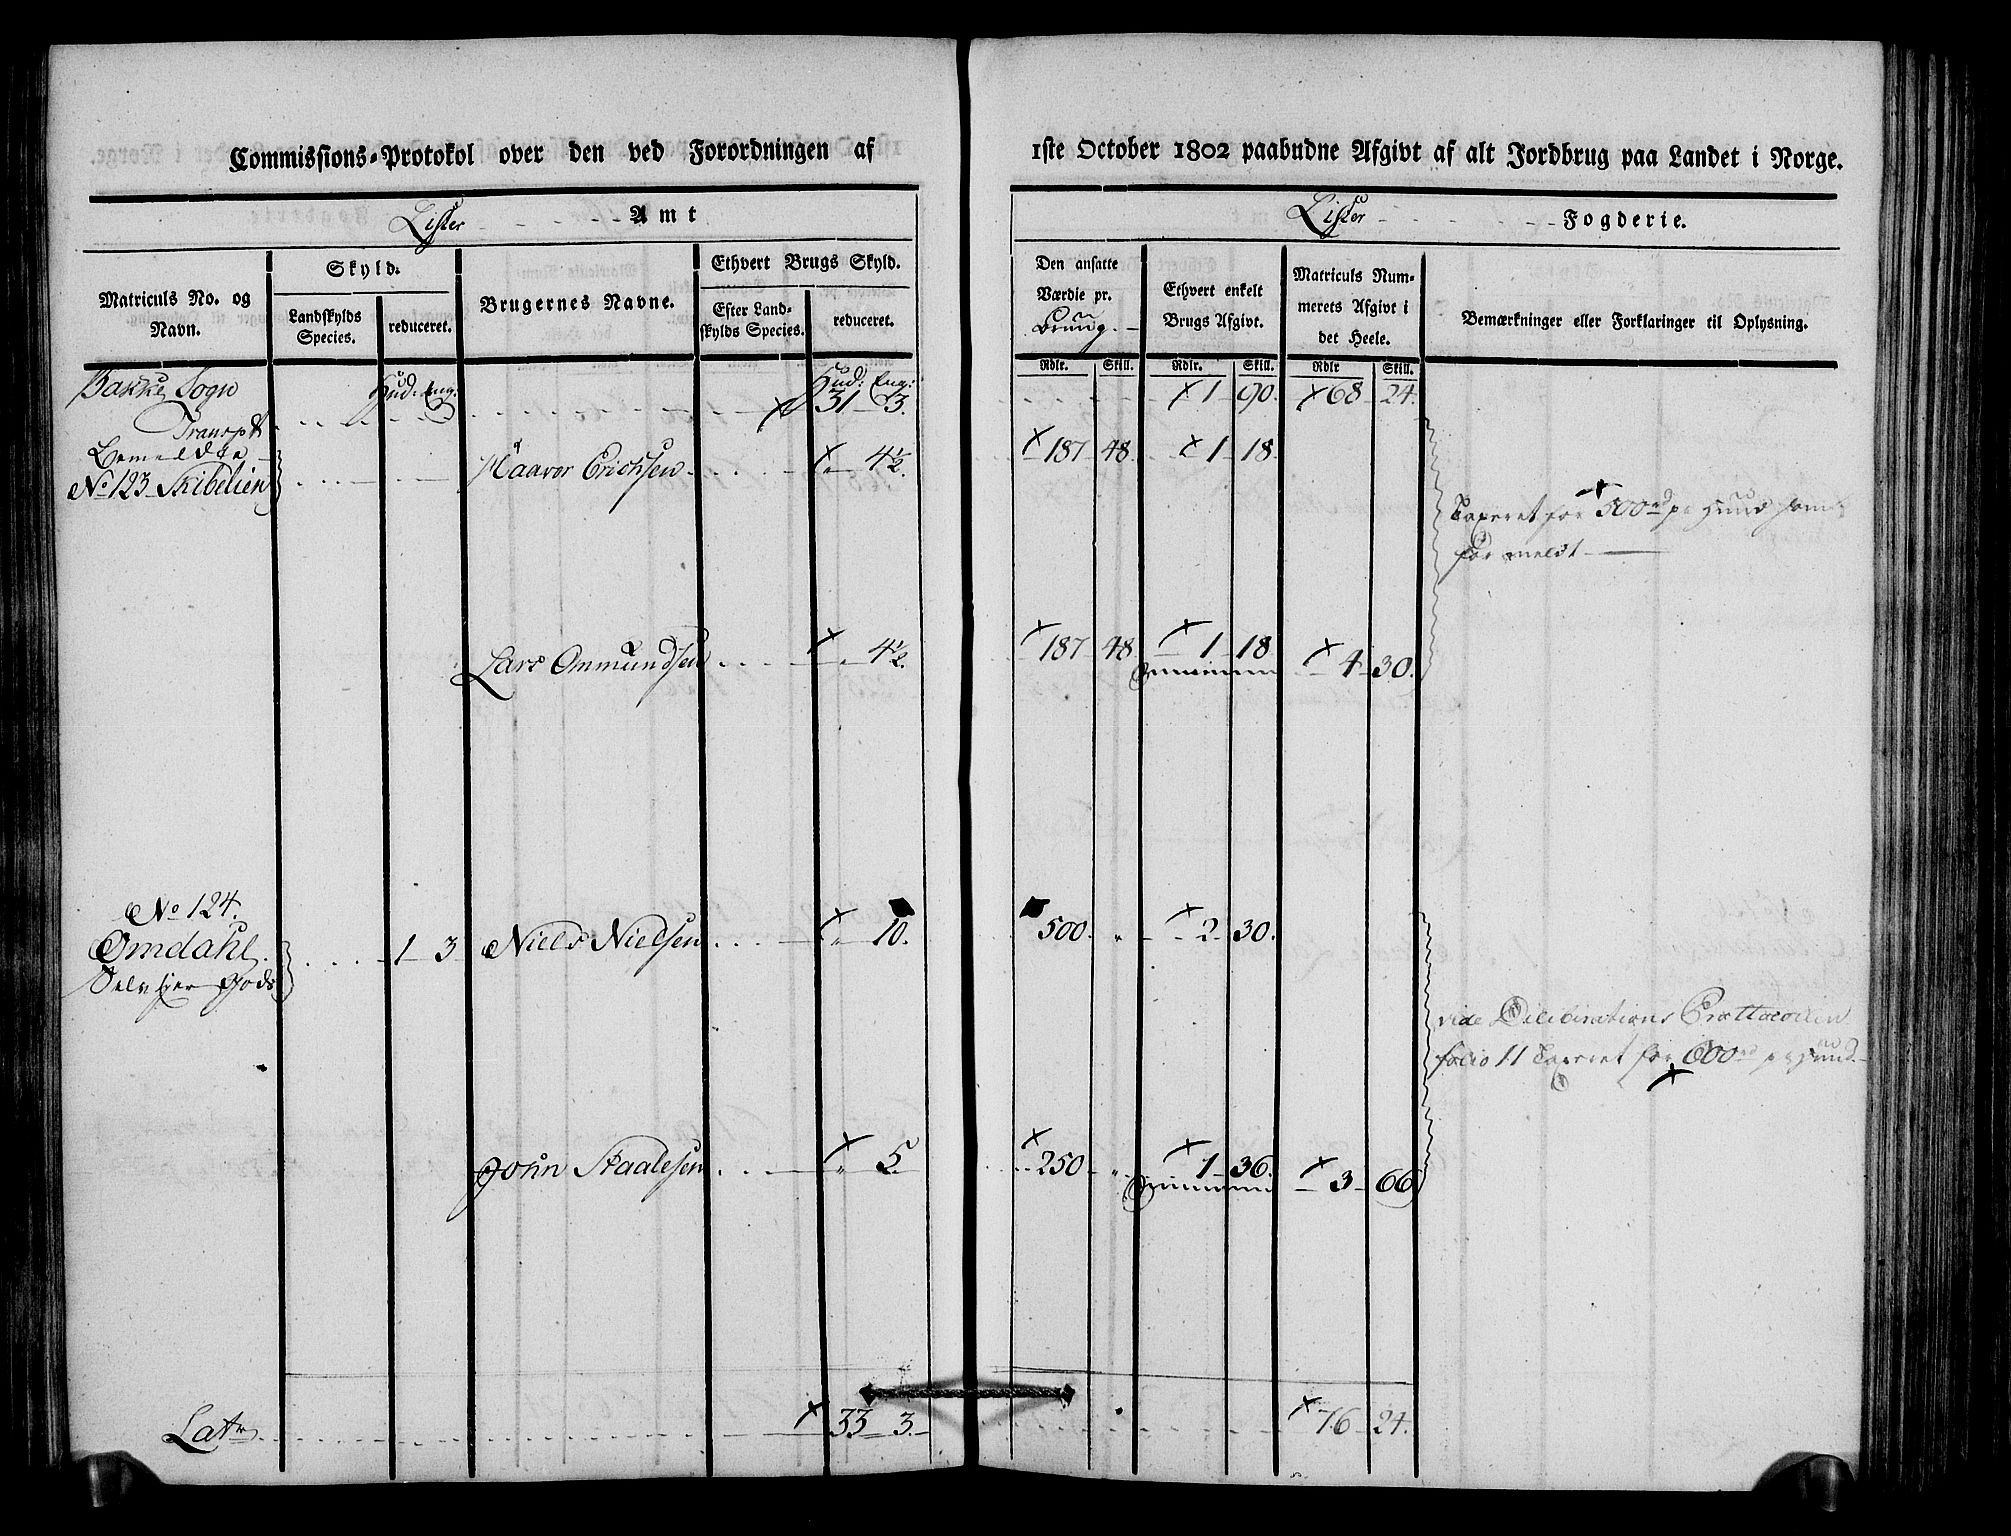 Commissions-Protokol over den ved Forordningen af 1ste October 1802 paabudne Afgivt af alt Jordbrug paa Landet i Norge.
Lister Amt
Lister Fogderie.
Matriculs No. og Navn.
Skyld.
Landskylds Species.
reduceret.
Brugernes Navne.
Ethvert Brugs Skyld.
Efter Landskylds Species.
reduceret.
Den ansatte Værdie pr. Bruug.
Ethvert enkelt Brugs Afgivt.
Matriculs Nummerets Afgivt i det Heele.
Bemærkninger eller Forklaringer til Oplysning.
Rdlr. Skill. Rdlr. Skill. Rdlr Skill.
Bakke Sogn Hud: Eng: Hud: Eng:
Transpt 31 3. 1 90. 68 24.
Bemeldte
No 123 Skibelien Haavor Erichsen 4½. 187 48. 1 18.
Taxeret for 500rd pr Huud som
før meldt
Lars Ommundsen 4½. 187 48 1 18 4 30.
No 124.
Omdahl. 1 3 Niels Nielsen 10. 500. 2 30.
Selveier Gods
vide Deliberations Prottocollen
folio 11 Taxeret for 600rd pr Huud.
John Staalesen 5 250 1 36. 3 66
Latr 33 3. 76 24.